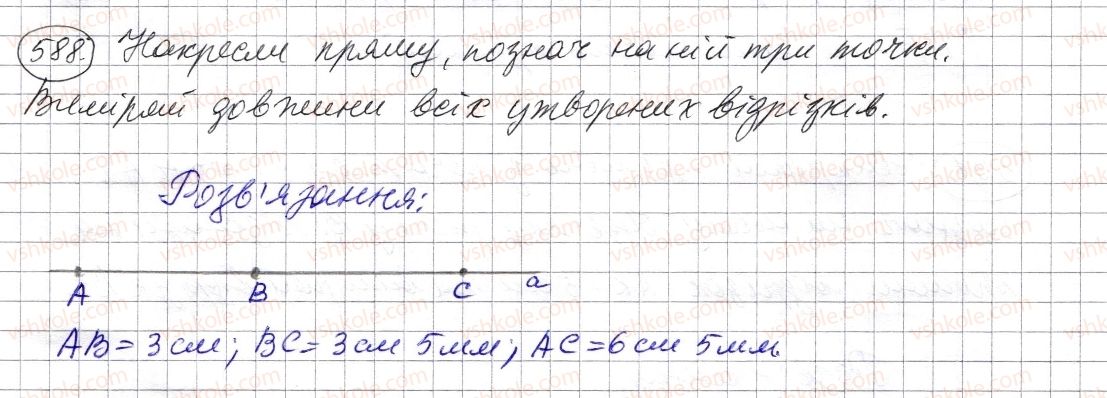 588. Накресли пряму, познач на ній три точки.
Виміряй довжини всіх утворених відрізків.
Розв'язання:
A B C a
AB = 3 см; BC = 3 см 5 мм; AC = 6 см 5 мм.
vshkole.com